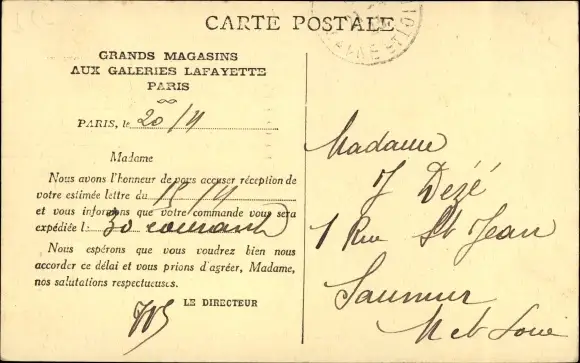 CARTE POSTALE
GRANDS MAGASINS
AUX GALERIES LAFAYETTE
PARIS
PARIS, le 20/4
Madame
Nous avons l'honneur de vous accuser réception de
votre estimée lettre du 15/4
et vous informons que votre commande vous sera
expédiée le 30 courant
Nous espérons que vous voudrez bien nous
accorder ce délai et vous prions d'agréer, Madame,
nos salutations respectueuses.
LE DIRECTEUR
Madame
J Dezé
1 Rue St Jean
Saumur
M et Loire